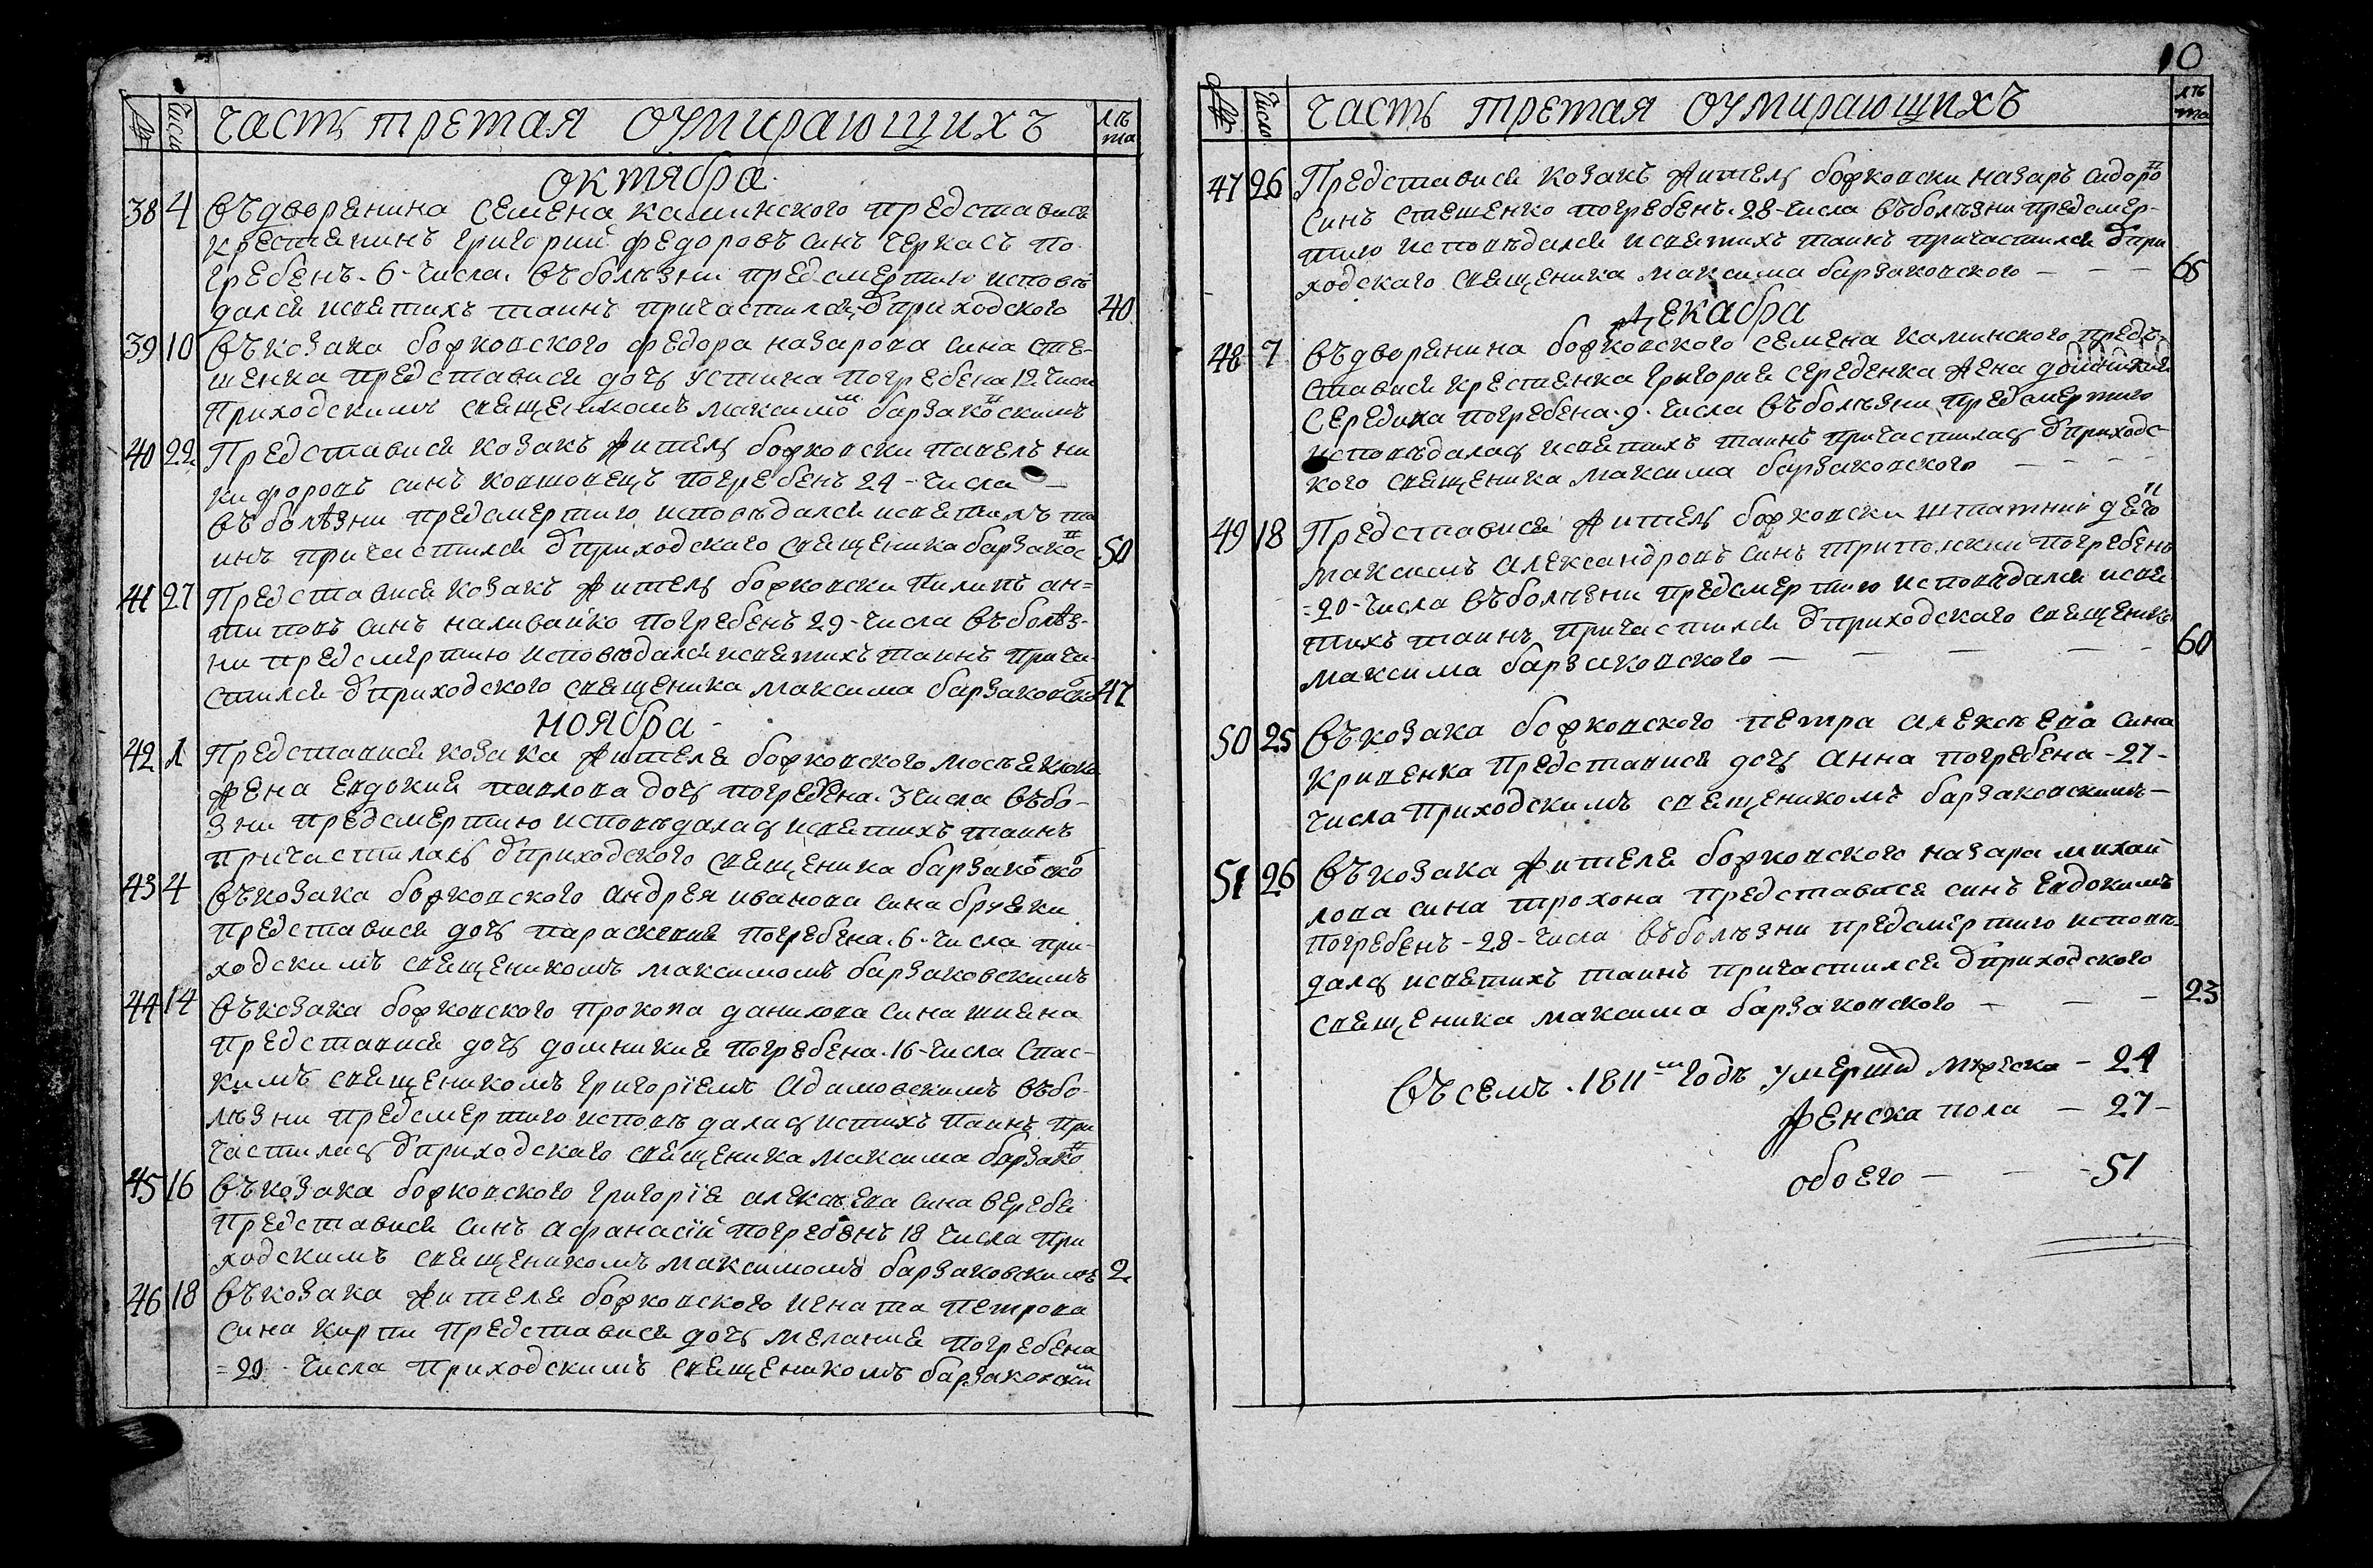 № Число Часть третая оумирающихъ лѣта
октября
38 4 въ дворенина семена каминского представися
крестенинъ григорий федоровъ синъ черкасъ по
гребенъ. 6 - числа. въ болѣзни предсмертию исповѣ
дался исвѣтихъ таинъ причастился ѿ приходского 40
39 10 въ козака божковского федора назарова сина сте-
шенка представися дочь устина погребена 12 числа
приходскимъ свещеникомъ максимо барзаковскимъ
40 22 Представися козакъ житель божковски павелъ ни
кифоровъ синъ ковтовецъ погребенъ 24 - числа —
въ болѣзни предсмертию исповѣдался исветихъ та
инъ причастился ѿ приходскаго свещеника барзаковс 50
41 27 Представися козакъ житель божковски пилипъ ан=
типовъ синъ наливайко погребенъ 29 - числа въ болѣз-
ни предсмертию исповѣдался исветихъ таинъ прича
стился ѿ приходского свещеника максима барзаковско 47
ноября -
42 1 Представися козака жителе божковского мосѣя
жена евдокия павлова дочь погребена. 3 числа въ бо-
зни предсмертию исповѣдалась исветихъ таинъ
причастилась ѿ приходского свещеника барзаковско
43 4 въ козака божковского андрея иванова сина
представися дочь параскевия погребена. 6 - числа при
ходскимъ свещеникомъ максимомъ барзаковскимъ
44 14 въ козака божковского прокопа данилова сина
представися дочь домникия погребена. 16 - числа Спас-
кимъ свещеникомъ григорїемъ адамовскимъ въ бо-
лѣзни предсмертию исповѣдалась истихъ таинъ при
частилась ѿ приходскаго свещеника максима барзако
45 16 въ козака божковского григорїя алексѣева сина вереби
представися синъ афанасїй погребенъ 18 числа при
ходскимъ свещеникомъ максимомъ барзаковскимъ 2
46 18 въ козака жителе божковского игната петрова
сина кирпи представися дочь мелания погребена
= 20 - числа приходскимъ свещеникомъ барзаковски
10
№ Число Часть третая оумирающихъ лѣта
47 26 Представися козакъ житель божковски назаръ сидоро
синъ стешенко погребенъ. 28 - числа въ болѣзни предсмер-
тию исповѣдался исветихъ таинъ причастился ѿ при
ходскаго свещеника максима барзаковского — — — 65
декабра
48 7 въ дворенина божковского семена каминского пред
стависи крестенка григория середенка жена домникия
середина погребена. 9. числа въ болѣзни предсмертию
исповѣдалась исветихъ таинъ причастилась ѿ приходс-
кого свещеника максима барзаковского — — — —
49 18 Представися житель божковски штатний
максимъ александровъ синъ триполский погребенъ
= 20 - числа въ болѣзни предсмертию исповѣдался исве
тихъ таинъ причастился ѿ приходскаго свещеника 60
максима барзаковского — — — — —
50 25 въ козака божковского петра алексѣева сина
кривенка представися дочь анна погребена - 27 -
числа приходскимъ свещеникомъ барзаковскимъ —
51 26 въ козака жителе божковского назара михай
лова сина трохона представися синъ евдокимъ
погребенъ - 28 - числа въ болѣзни предсмертию исповѣ
далсь исветихъ таинъ причастился ѿ приходского
свещеника максима барзаковского — — — 23
въ семъ. 1811 годѣ умерши мужеска — 24
женска пола — 27 -
обоего — — - 51